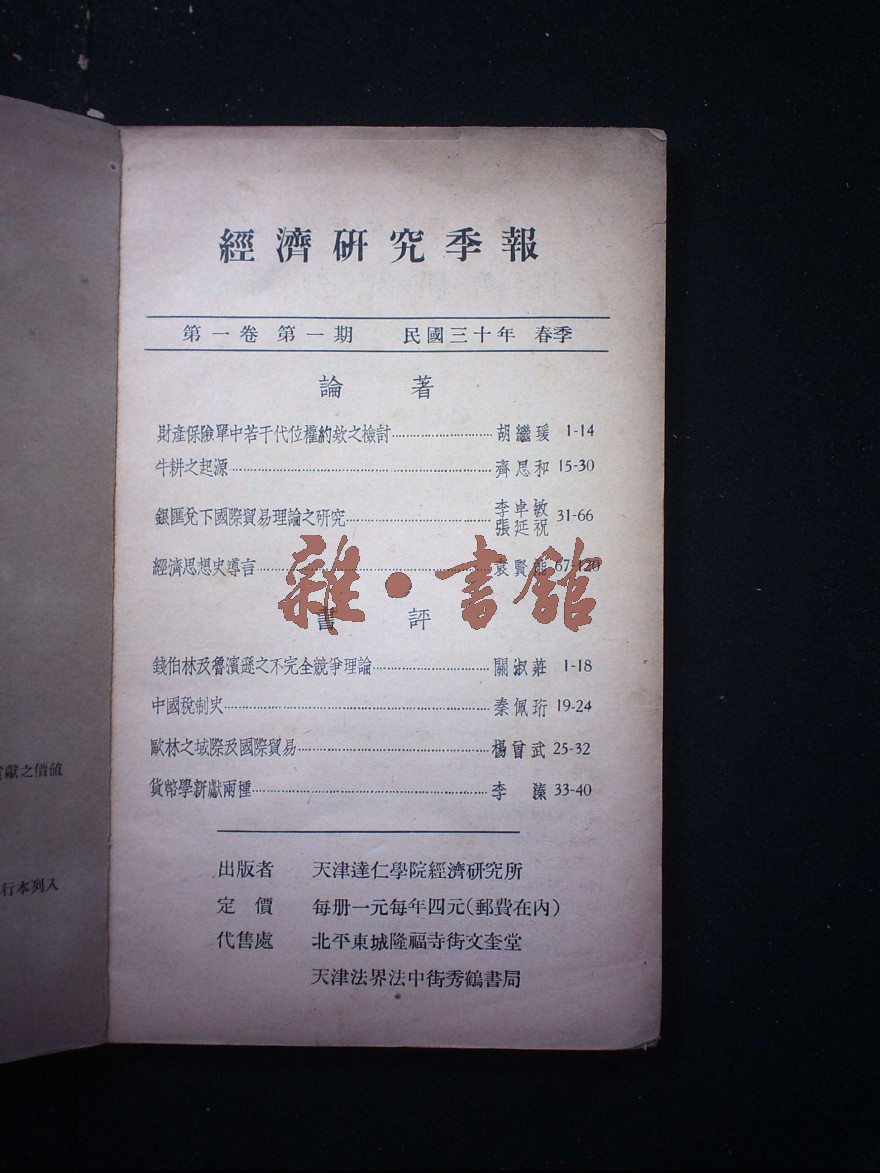 經濟研究季報
第一卷 第一期 民國三十年 春季
論著
財產保險單中若干代位權約款之檢討 胡繼瑗 1-14
牛耕之起源 齊思和 15-30
銀匯兌下國際貿易理論之研究 李卓敏 張延祝 31-66
經濟思想史導言 袁賢能 67-120
雜·書館
書評
錢伯林及魯濱遜之不完全競爭理論 關淑莊 1-18
中國稅制史 秦佩珩 19-24
歐林之域際及國際貿易 楊曾武 25-32
貨幣學新獻兩種 李溱 33-40
出版者 天津達仁學院經濟研究所
定價 每册一元每年四元(郵費在內)
代售處 北平東城隆福寺街文奎堂
天津法界法中街秀鶴書局
獻之價値
行本列入